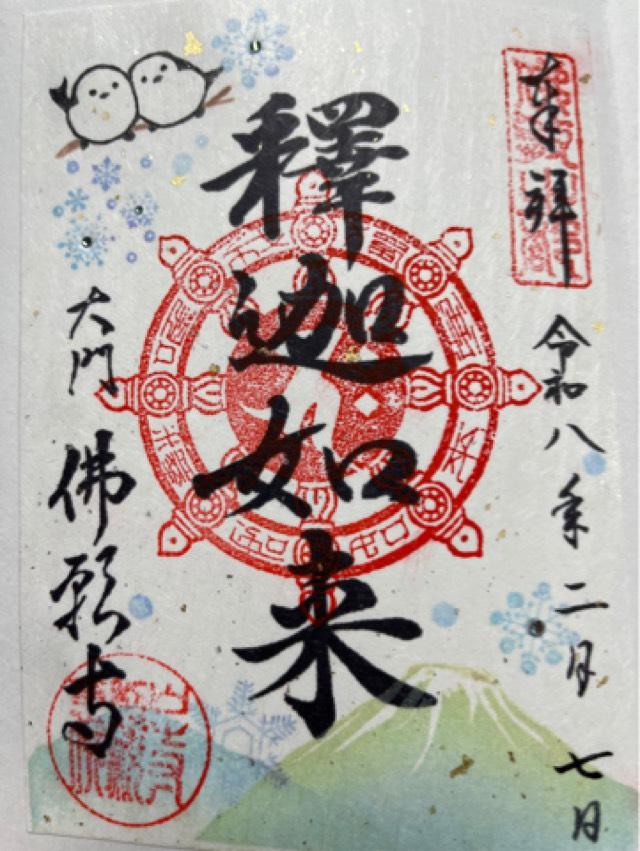 奉拝
令和八年二月七日
釋迦如来
大門
佛願寺